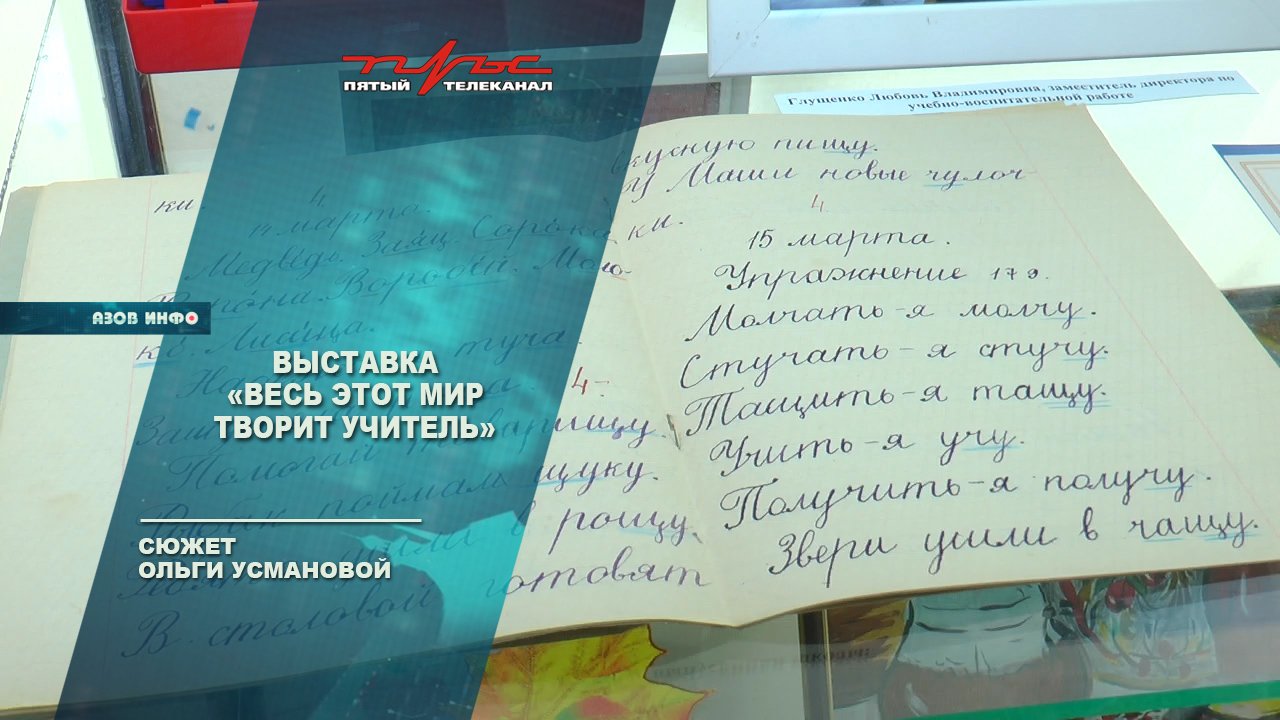 пульс
ПЯТЫЙ ТЕЛЕКАНАЛ
АЗОВ ИНФО
ВЫСТАВКА
«ВЕСЬ ЭТОТ МИР
ТВОРИТ УЧИТЕЛЬ»
СЮЖЕТ
ОЛЬГИ УСМАНОВОЙ
Глущенко Любовь Владимировна, заместитель директора по
учебно-воспитательной работе
ки. 4
14 марта.
Медведь. Заяц. Сорока
Ворона. Воробей. Моло-
ко. Лисица.
туча.
4-
Помогай товарищу.
Рыбак поймал щуку.
в рощу.
В столовой готовят
вкусную пищу.
У Маши новые чулоч-
ки. 4
15 марта.
Упражнение 179.
Молчать-я молчу.
Стучать-я стучу.
Тащить-я тащу.
Учить-я учу.
Получить-я получу.
Звери ушли в чащу.